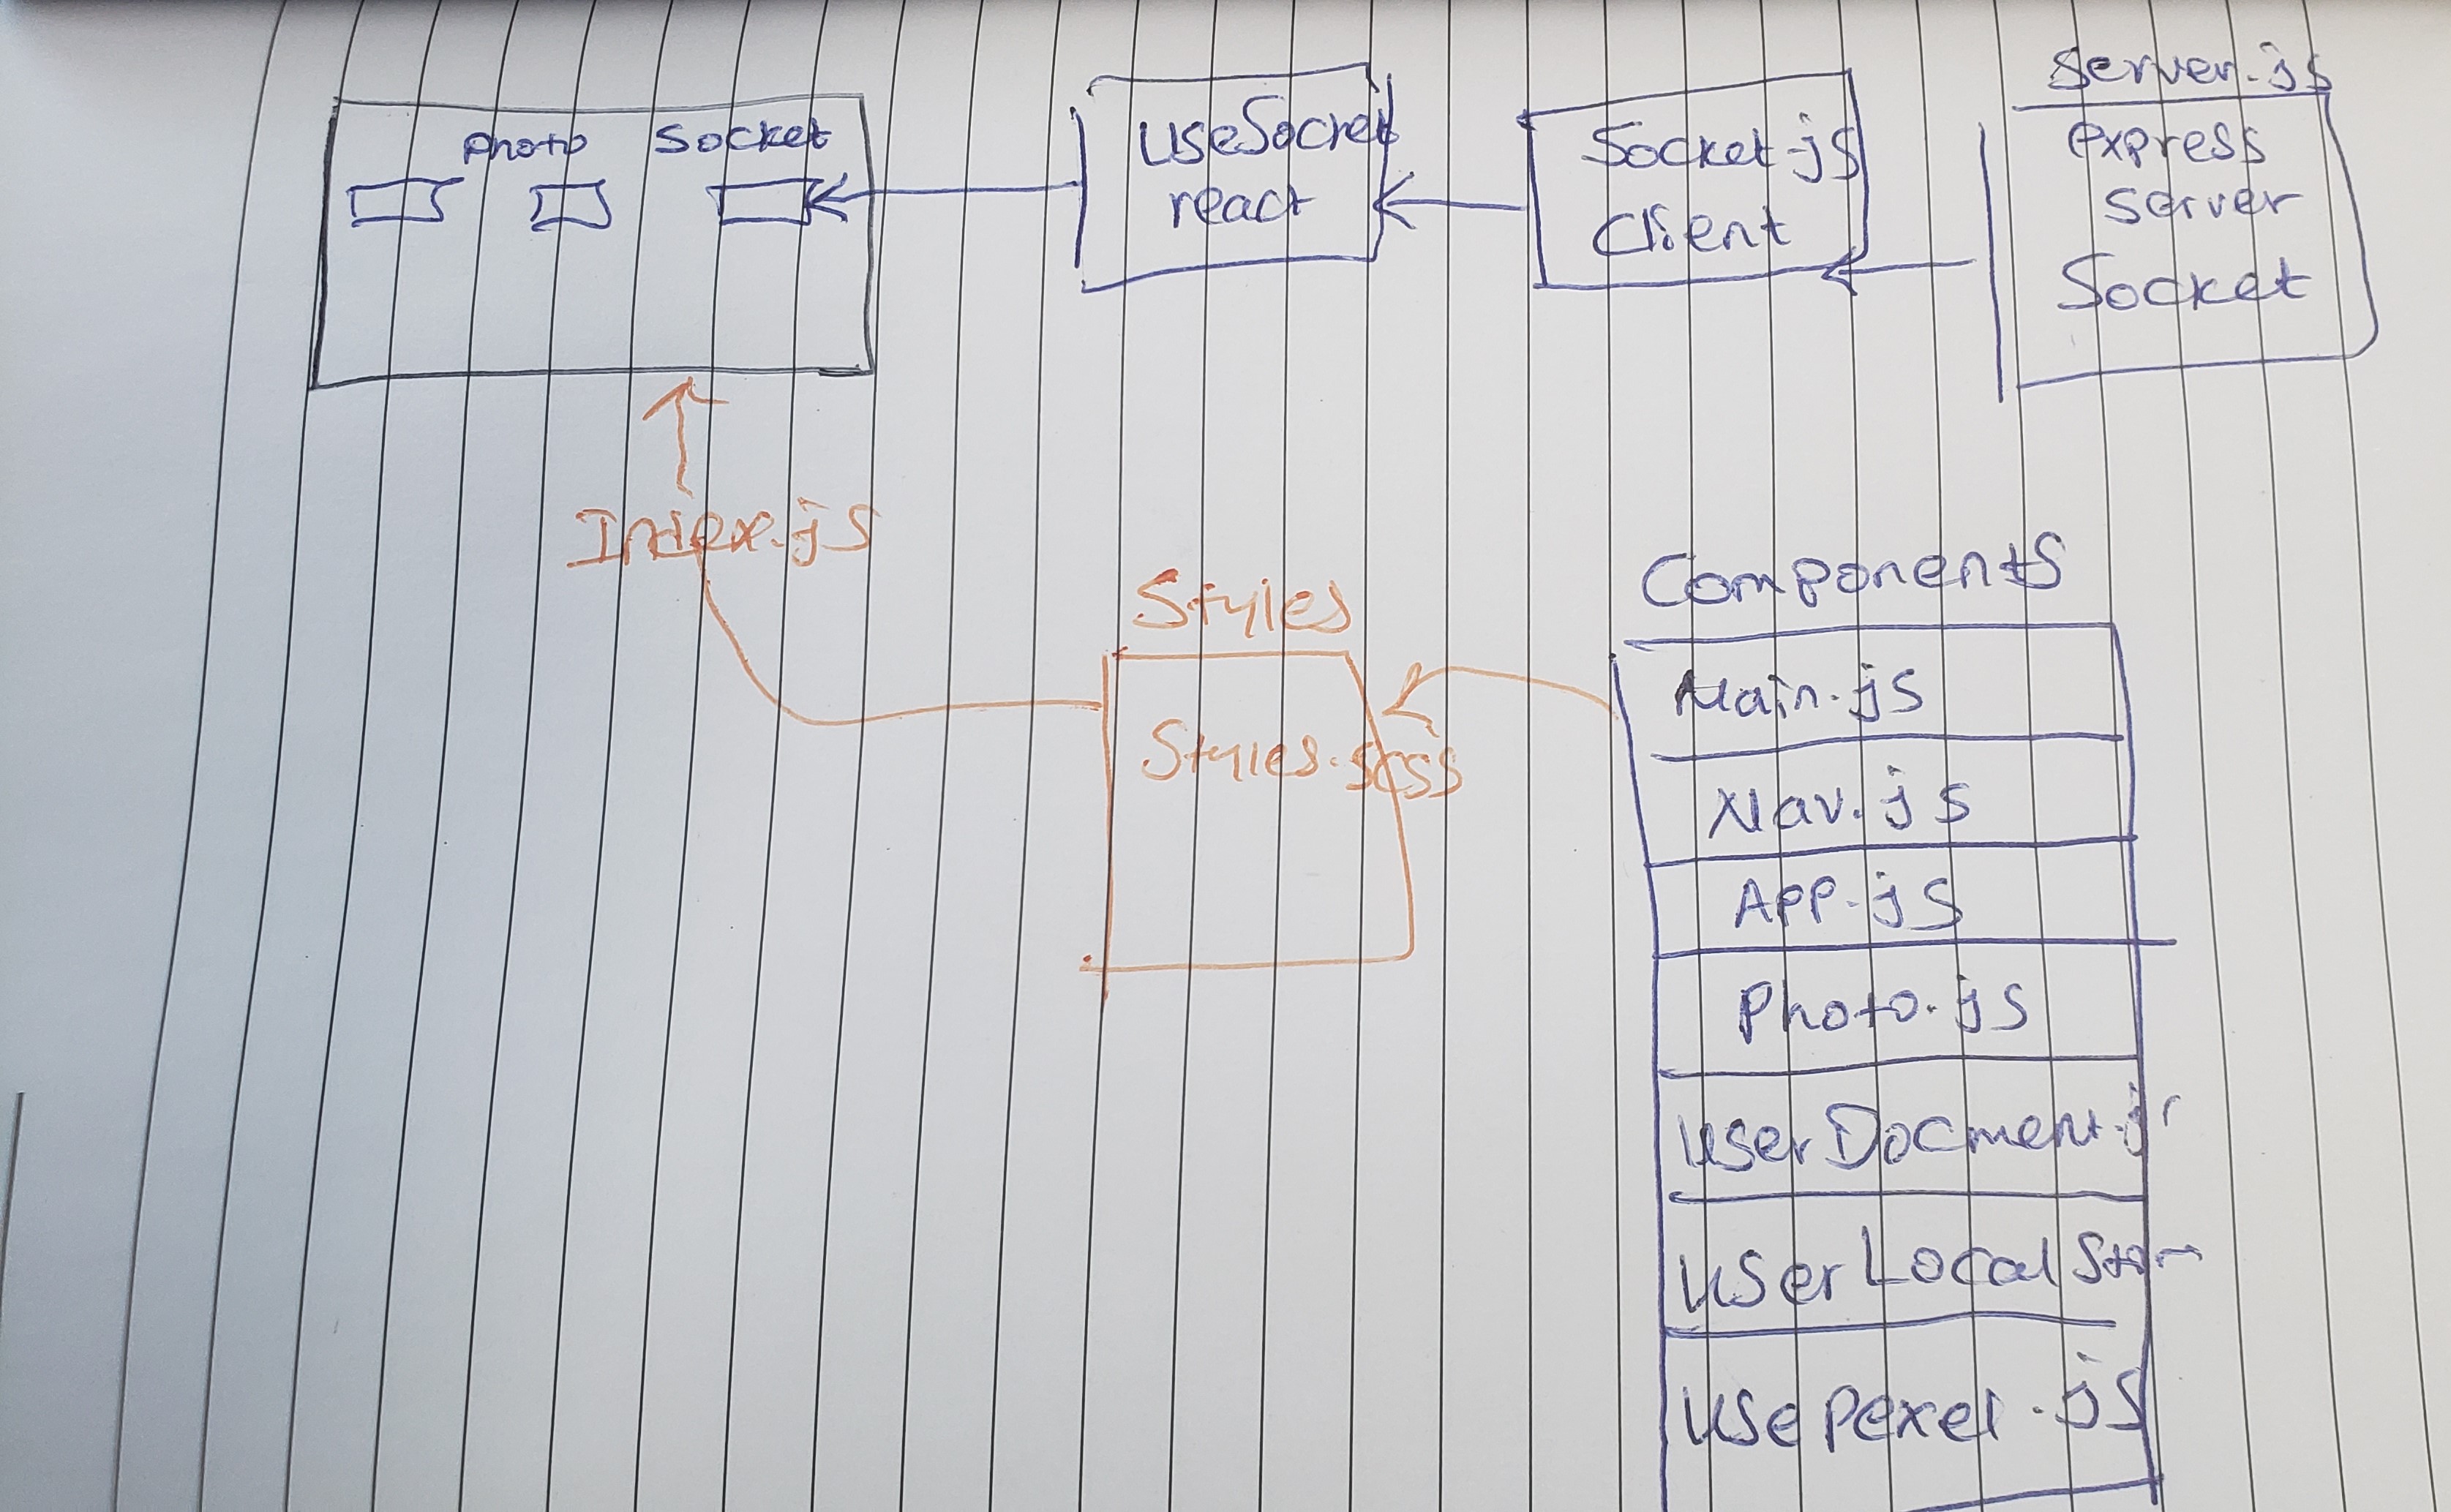 Photo Socket
useSocket
react
Socket.js
Client
server.js
express
server
Socket
Index.js
Styles
Styles.scss
Components
Main.js
Nav.js
App.js
Photo.js
userDocment.js
userLocal
usePexel.js